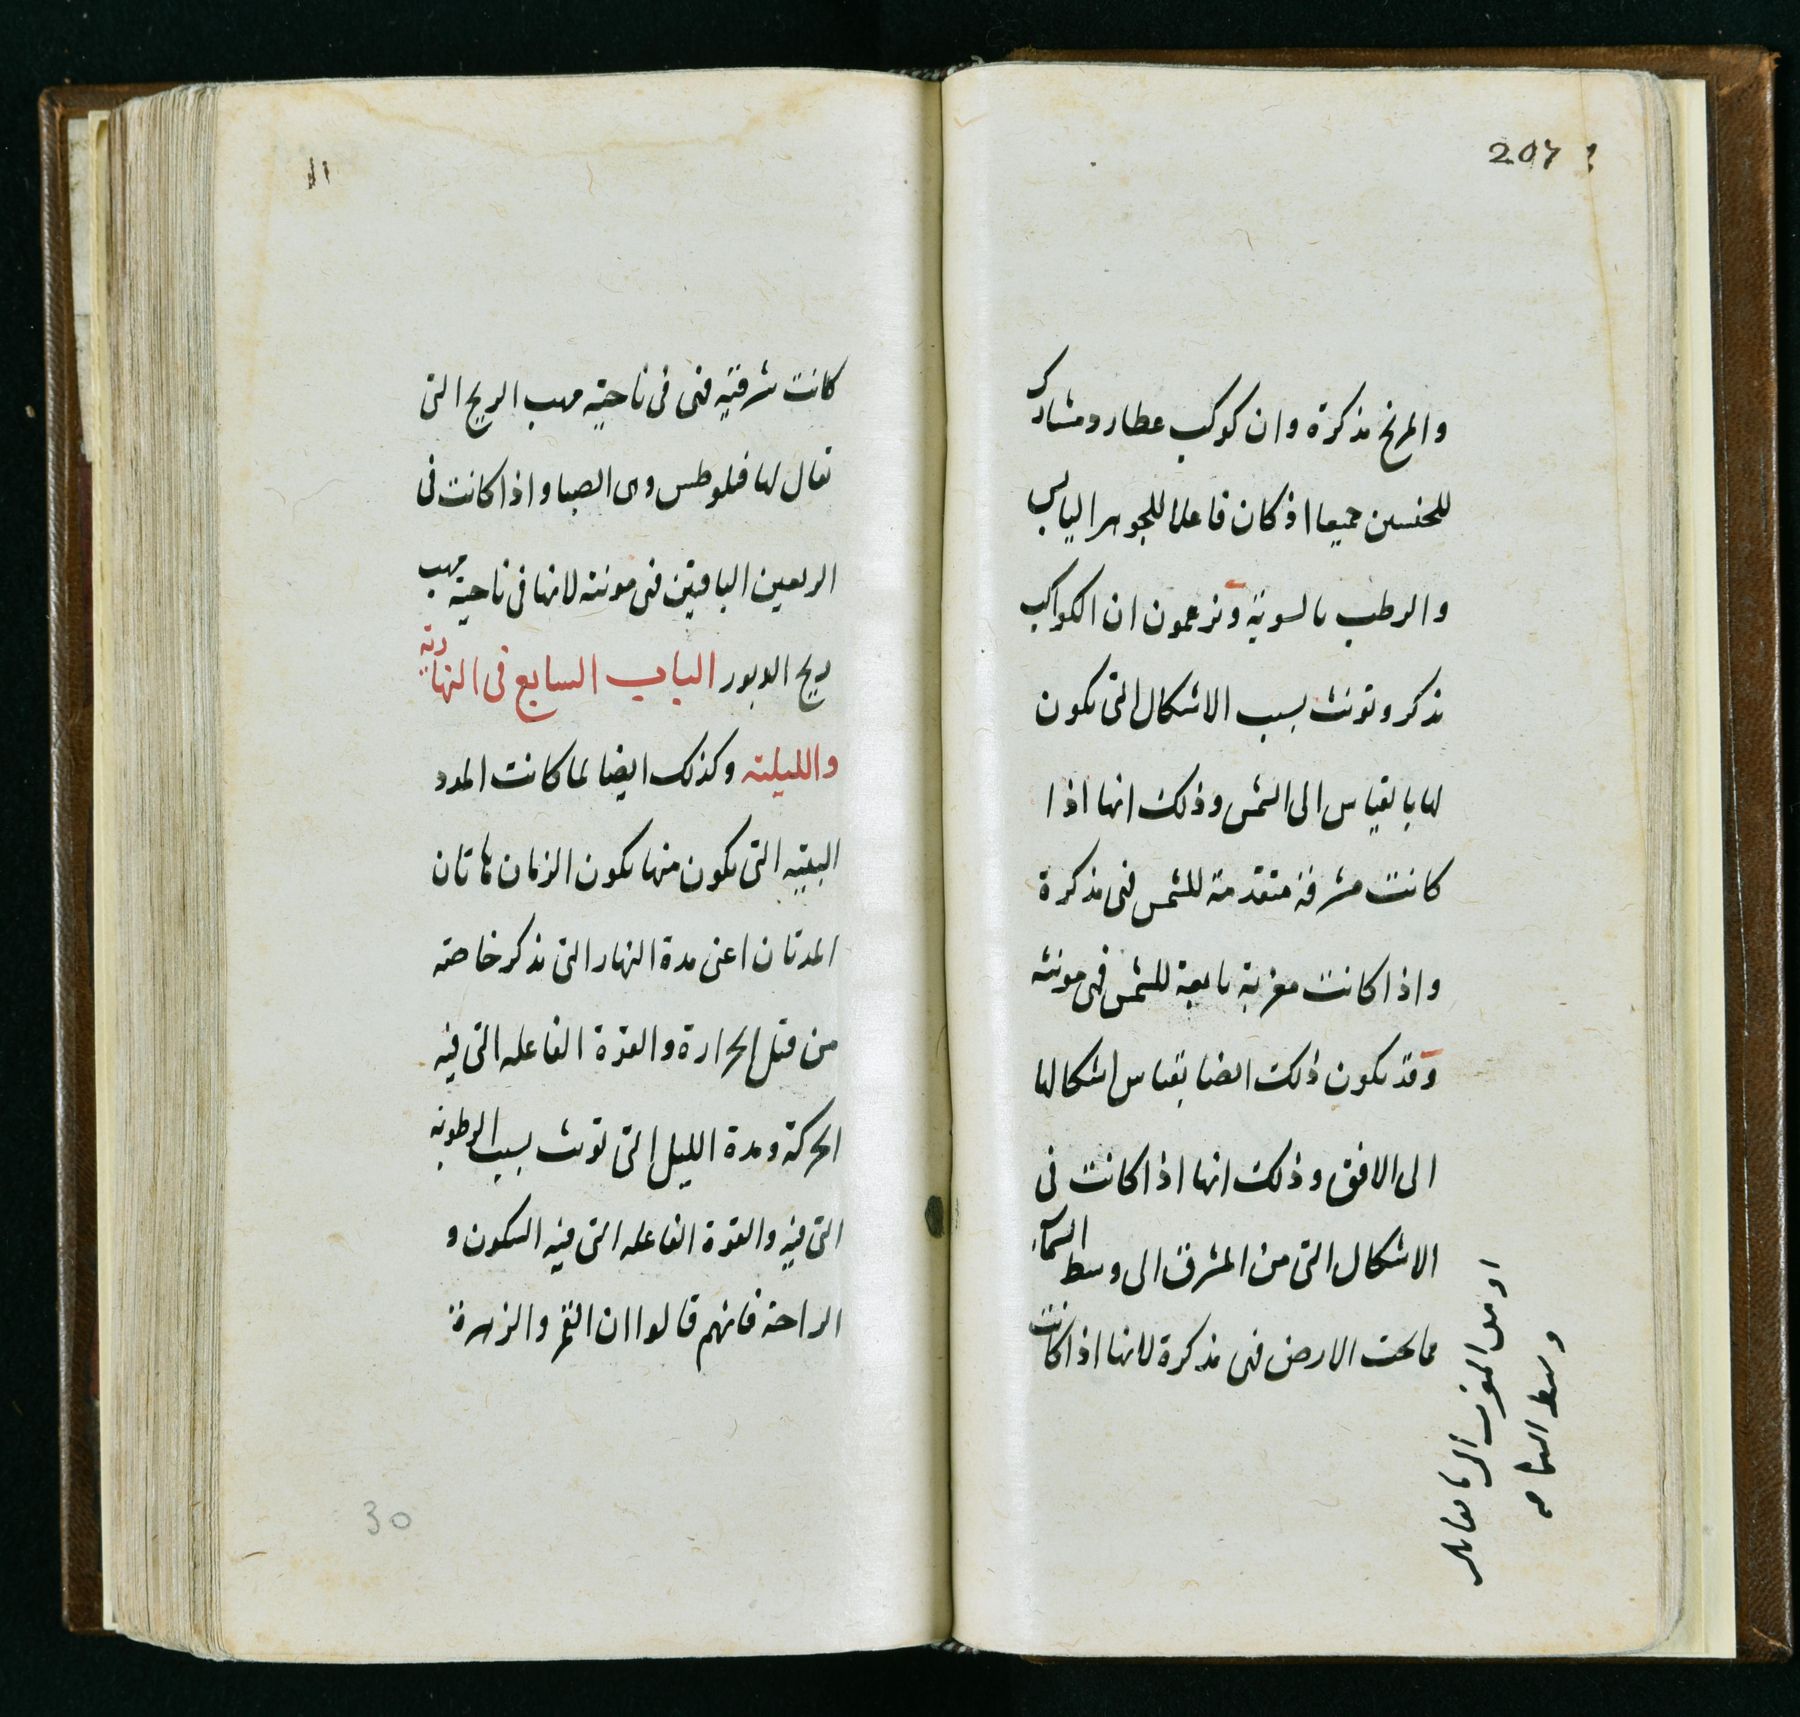 207
والمريخ مذكرة وان كوكب عطارد مشارك
للجنسين جميعا اذ كان فاعلا للجوهر اليابس
والرطب بالسوية ويزعمون ان الكواكب
تذكر وتونث بسبب الاشكال التى تكون
لها بالقياس الى الشمس وذلك انها اذا
كانت مشرقة متقدمة للشمس فهى مذكرة
واذا كانت مغربة تابعة للشمس فهى مونثه
وقد تكون ذلك ايضا بقياس اشكالها
الى الافق وذلك انها اذا كانت فى
الاشكال التى من المشرق الى وسط السماء
مما تحت الارض فهى مذكرة لانها اذا كانت
او من المغرب الى ما يقابل
وسط السماء
١١
كانت شرقيه فهى فى ناحية مهب الريح التى
تقال لها فلوطس وهى الصبا واذا كانت فى
الربعين الباقيين فهى مونثه لانها فى ناحية مهب
ريح الدبور الباب السابع فى النهارية
والليلية وكذلك ايضا لما كانت المدد
البينيه التى تكون منها يكون الزمان هاتان
المدتان اعنى مدة النهار التى تذكر خاصته
من قبل الحرارة والقوة الفاعله التى فيه
الحركة ومدة الليل التى تونث بسبب الرطوبه
التى فيه والقوة الفاعله التى فيه السكون و
الراحة فانهم قالوا ان القمر والزهرة
30